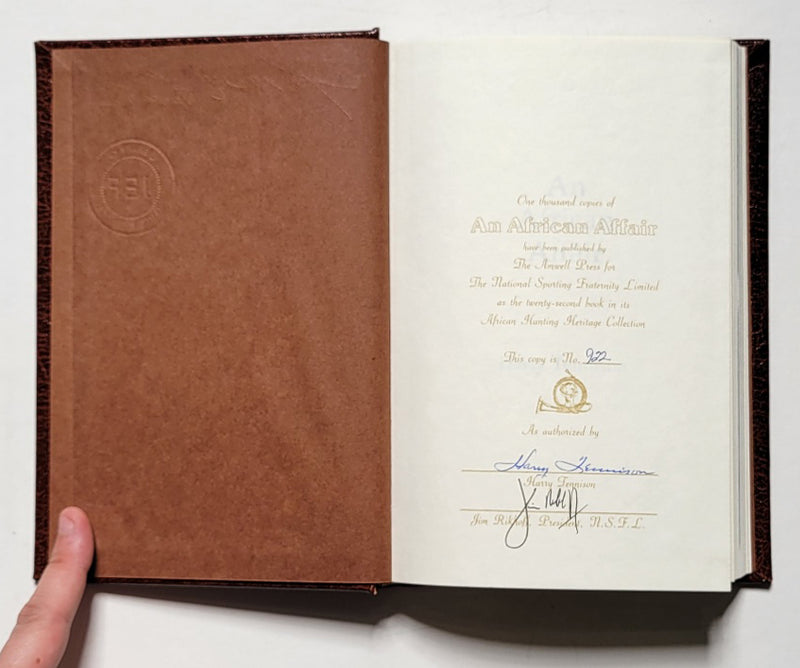 One thousand copies of
An African Affair
have been published by
The Amwell Press for
The National Sporting Fraternity Limited
as the twenty-second book in its
African Hunting Heritage Collection
This copy is No. 922
As authorized by
Harry Tennison
Harry Tennison
Jim Rikhoff, President, N.S.F.L.